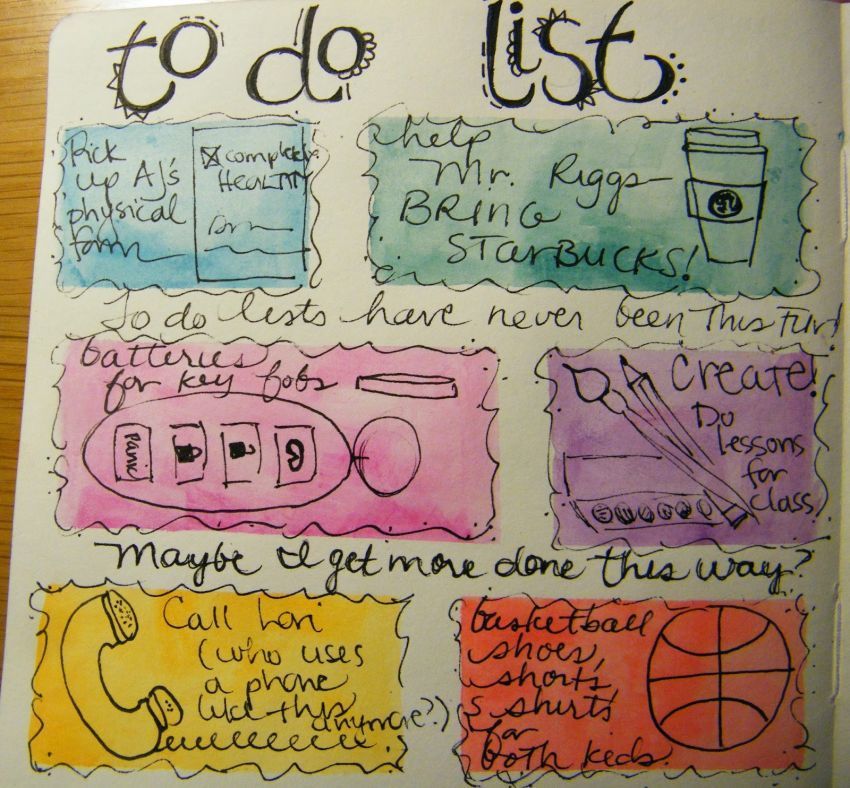 to do list
Pick
up AJ's
physical
form
completely
HEALTHY
help
Mr. Riggs—
BRING
STARBUCKS!
To do lists have never been this fun!
batteries
for key fobs
Panic
Create!
Do
lessons
for
class
Maybe I get more done this way?
Call Lori
(who uses
a phone
like this
anymore?)
basketball
shoes,
shorts,
shirts
for
both kids.